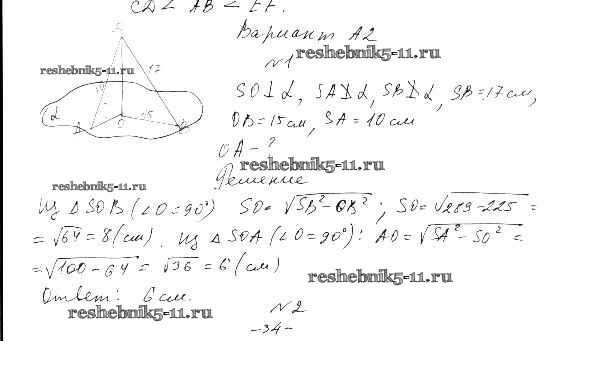 CD < AB < EF.
Вариант А2
reshebnik5-11.ru
№1
reshebnik5-11.ru
S
17
10
15
α
A
O
B
SO⊥α, SA⊥̸α, SB⊥̸α, SB=17см,
OB=15см, SA=10см
OA-?
reshebnik5-11.ru
Решение
reshebnik5-11.ru
Из △SOB (∠O=90°) SO=√SB²-OB²; SO=√289-225 =
=√64=8(см). Из △SOA (∠O=90°): AO=√SA²-SO² =
=√100-64 = √36 = 6(см)
reshebnik5-11.ru
Ответ: 6 см.
reshebnik5-11.ru
№2
-34-